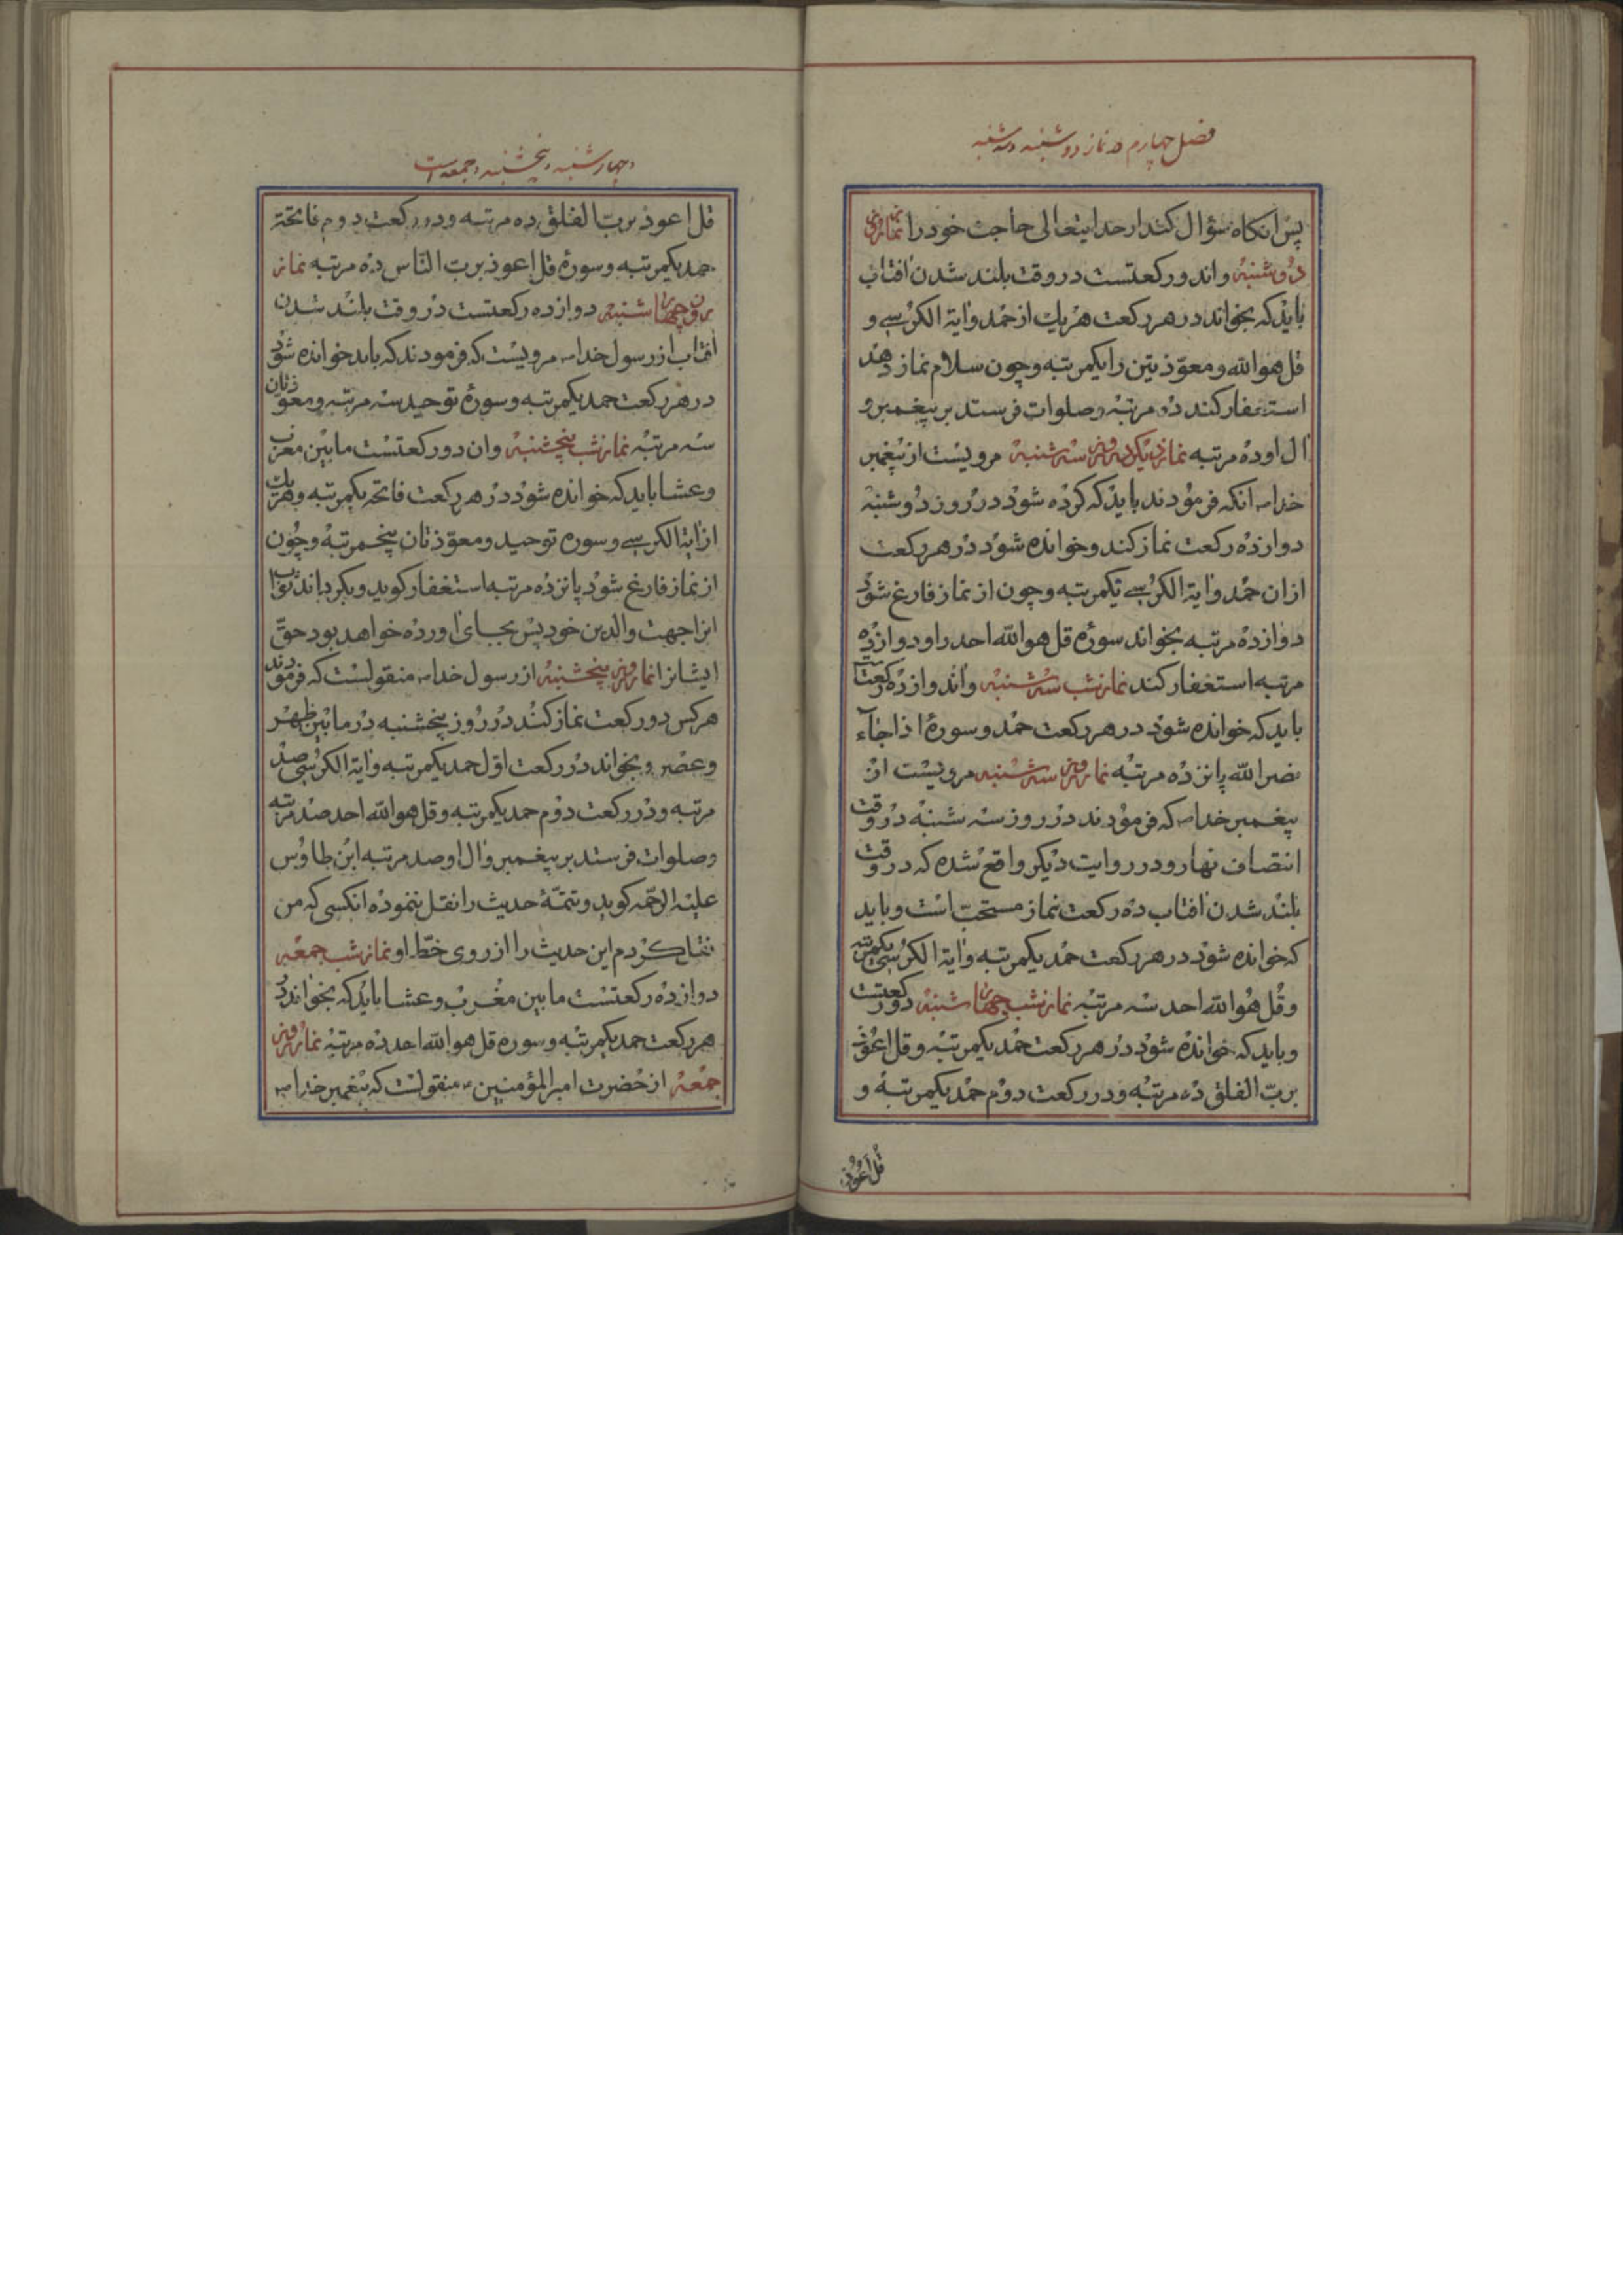 فصل چهارم در نماز دوشنبه و سه شنبه
پس انکاه سؤال کند از خدایتعالی حاجت خود را نماز روز
دوشنبه واندو رکعتست در وقت بلند شدن افتاب
باید که بخواند در هر رکعت هر یک از حمد وایة الکرسی و
قل هو الله و معوّذتین را یکمرتبه و چون سلام نماز دهد
استغفار کند ده مرتبه و صلوات فرستد بر پیغمبر و
ال او ده مرتبه نماز دیکر در روز سه شنبه مرویست از پیغمبر
خدا ص انکه فرمودند باید که کرده شود در روز دوشنبه
دوازده رکعت نماز کند و خوانده شود در هر رکعت
ازان حمد وایة الکرسی یکمرتبه و چون از نماز فارغ شود
دوازده مرتبه بخواند سوره قل هو الله احد را و دوازده
مرتبه استغفار کند نماز شب سه شنبه واندوازده رکعتست
باید که خوانده شود در هر رکعت حمد و سورهٔ اذا جآء
نصر الله پانزده مرتبه نماز روز سه شنبه مرویست از
پیغمبر خدا ص که فرمودند در روز سه شنبه در وقت
انتصاف نهار و در روایت دیکر واقع شده که در وقت
بلند شدن افتاب ده رکعت نماز مستحبّ است و باید
که خوانده شود در هر رکعت حمد یکمرتبه وایة الکرسی یکمرتبه
و قل هو الله احد سه مرتبه نماز شب چهارشنبه دو رکعتست
و باید که خوانده شود در هر رکعت حمد یکمرتبه و قل اعوذ
بربّ الفلق ده مرتبه و در رکعت دوم حمد یکمرتبه و
قل اعوذ
و چهارشنبه و پنجشنبه و جمعه است
قل اعوذ بربّ الفلق ده مرتبه و در رکعت دوم فاتحة
حمد یکمرتبه و سورهٔ قل اعوذ بربّ النّاس ده مرتبه نماز
روز چهارشنبه دوازده رکعتست در وقت بلند شدن
افتاب از رسول خدا ص مرویست که فرمودند که باید خوانده شود
در هر رکعت حمد یکمرتبه و سورهٔ توحید سه مرتبه و معوذتان
سه مرتبه نماز شب پنجشنبه وان دو رکعتست مابین مغرب
و عشا باید که خوانده شود در هر رکعت فاتحه یکمرتبه و هریک
از ایة الکرسی و سوره توحید و معوّذتان پنجمرتبه و چون
از نماز فارغ شود پانزده مرتبه استغفار کوید و بکرداند ثواب
انرا جهت والدین خود پس بجای اورده خواهد بود حقّ
ایشانرا نماز روز پنجشنبه از رسول خدا ص منقولست که فرمودند
هر کس دو رکعت نماز کند در روز پنجشنبه در مابین ظهر
و عصر و بخواند در رکعت اوّل حمد یکمرتبه وایة الکرسی صد
مرتبه و در رکعت دوم حمد یکمرتبه و قل هو الله احد صد مرتبه
و صلوات فرستد بر پیغمبر وال او صد مرتبه ابن طاوس
علیه الرحمّه کوید و تتمّهٔ حدیث را نقل ننموده انکسی که من
نقل کردم این حدیث را از روی خطّ او نماز شب جمعه
دوازده رکعتست مابین مغرب و عشا باید که بخواند در
هر رکعت حمد یکمرتبه و سوره قل هو الله احد ده مرتبه نماز روز
جمعه از حضرت امیر المؤمنین ع منقولست که پیغمبر خدا ص